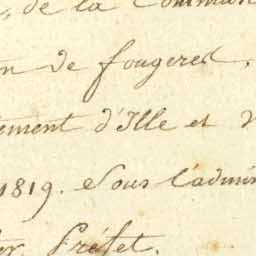 de la Commun
n de fougeres,
ement d'Ille et V
1819. Sous l'admin
Préfet.